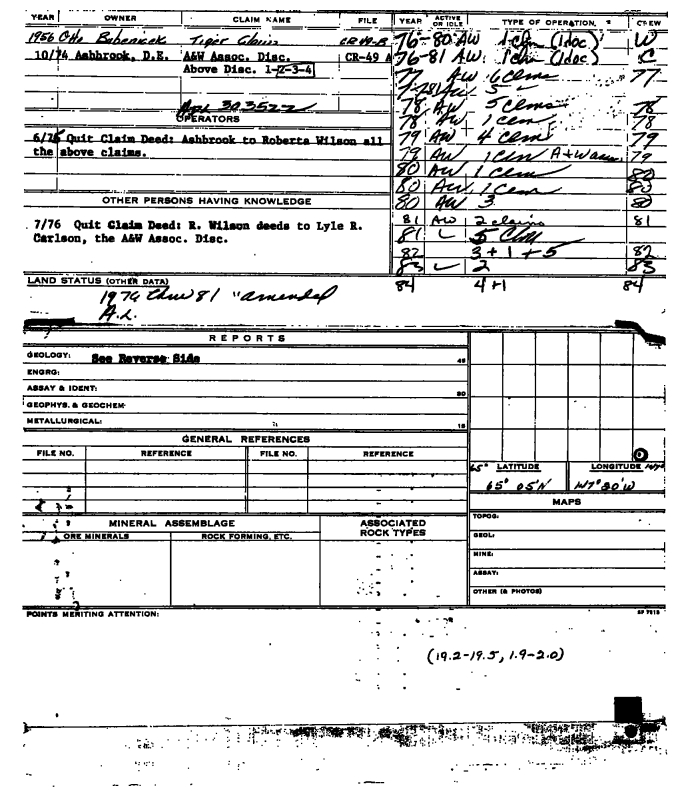 YEAR OWNER CLAIM NAME FILE YEAR ACTIVE OR IDLE TYPE OF OPERATION, CREW
1956 Otto Babenicek Tiger Claim CR 49-B
10/74 Ashbrook, D.E. A&W Assoc. Disc. CR-49 A
Above Disc. 1-2-3-4
Apl 303522
OPERATORS
6/75 Quit Claim Deed: Ashbrook to Roberta Wilson all
the above claims.
OTHER PERSONS HAVING KNOWLEDGE
7/76 Quit Claim Deed: R. Wilson deeds to Lyle R.
Carlson, the A&W Assoc. Disc.
76-80 AW 1 clm (1doc) W
76-81 AW 1 clm (1doc) C
77 AW 6 clms 77
78 AW 5 clms 78
78 AW 1 clm 78
79 AW 4 clms 79
79 AW 1 clm A+W assn 79
80 AW 1 clm 80
80 AW 1 clm 80
80 AW 3 80
81 AW 2 claims 81
81 5
82 3 + 1 + 5 82
83 2 83
84 4+1 84
LAND STATUS (OTHER DATA)
1976 thru 81 "amended
A.L.
REPORTS
GEOLOGY: See Reverse Side 45
ENGRG:
ASSAY & IDENT: 30
GEOPHYS. & GEOCHEM
METALLURGICAL: 15
GENERAL REFERENCES
FILE NO. REFERENCE FILE NO. REFERENCE
65° LATITUDE LONGITUDE 147°
65° 05'N 147° 20'W
MAPS
TOPOG:
GEOL:
MINE:
ASSAY:
OTHER (& PHOTOS)
MINERAL ASSEMBLAGE ASSOCIATED ROCK TYPES
ORE MINERALS ROCK FORMING, ETC.
POINTS MERITING ATTENTION:
(19.2-19.5, 1.9-2.0)